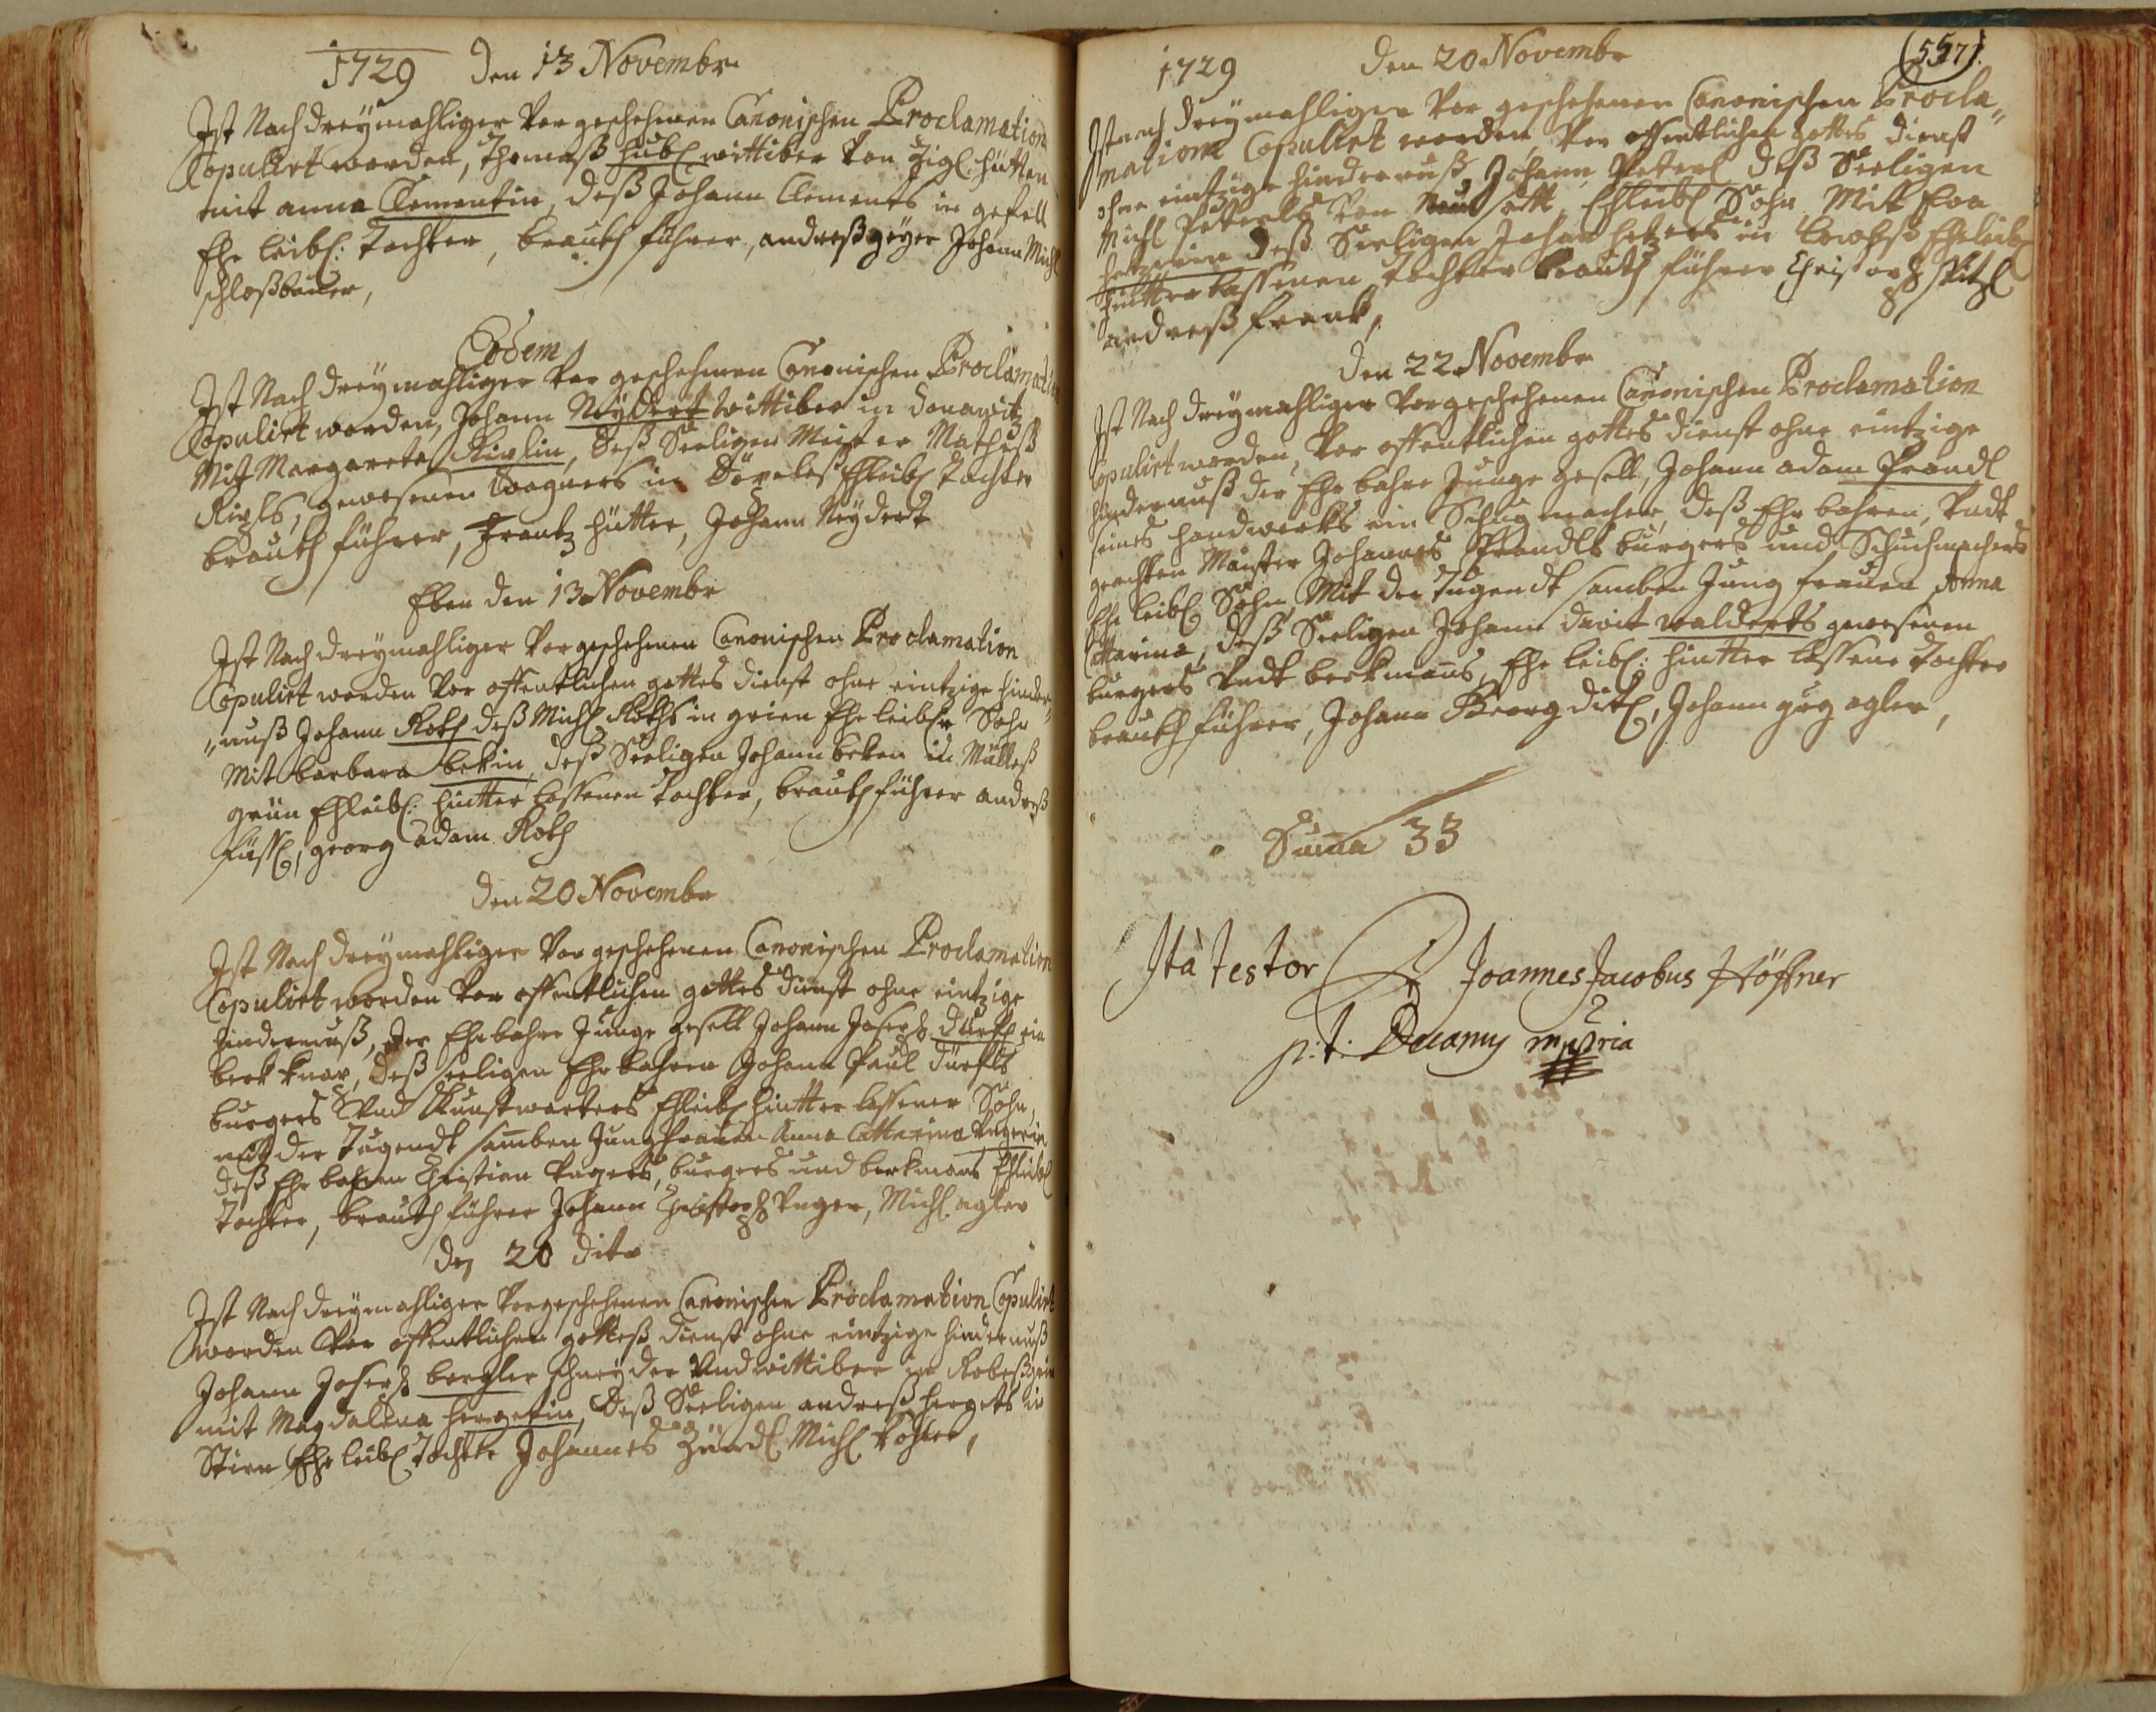 1729 Den 13 Novembr
Ist Nach dreymahliger Vor geschehenen Canonischen Proclamation
Copulirt worden, Thomaß Hübl wittiber Von Zigl hütten
mit anna Clementin, deß Johann Clements in gefell
Ehe leibl: Tochter, brauth führer, andreß geyer Johann Michl
schloßbauer,
Eodem
Ist Nach dreymahliger Vor geschehenen Canonischen Proclamation
Copulirt worden, Johann Neydert Wittiber in donawitz
Mit Margareta Rixlin, deß Seeligen Meister Matheß
Rixls, gewesenen Wagners in Döpeles Ehleibl Tochter
brauth führer, Frantz hütter, Johann Neydert
Eben den 13 Novembr
Ist Nach dreymahliger Vor geschehenen Canonischen Proclamation
Copulirt worden Vor offentlichen gottes dienst ohne eintzige hinder
nuß Johann Roth deß Michl Roths in grien Ehe leibler Sohn
Mit barbara bekin, deß Seeligen Johann beken in Mülleß
grün Ehleibl: hintter lassenen Tochter, brauth führer andreß
füssl, georg adam Roth
Den 20 Novembr
Ist Nach dreymahliger Vor geschehenen Canonischen Proclamation
Copulirt worden Vor offentlichen gottes dienst ohne eintzige
hindernuß, der Ehrbahre Junge gesell Johann Joseph dürfl ein
berk knap, deß seeligen Ehrbahren Johann Paul dürfls
burgers Und Kunstwarters Ehleibl hintter lassener Sohn,
mit der Tugendt samben Jungfrauen Anna Cattarina Ungerin
deß Ehr bahren Christian Ungers, burgers und berkmans Ehleibl
Tochter, brauth führer Johann Christoph Unger, Michl agler
den 20 dito
Ist Nach dreymahliger Vorgeschehenen Canonischen Proclamation Copulirt
worden Vor offentlichen gotteß dienst ohne eintzige hindernuß
Johann Joseph bergler schneyder Und wittiber zu Robeßgrün
mit Magdalena hergetin, deß Seeligen andreß hergets in
Stirn Ehe leibl Tochter Johannes Zürdl Michl Köhler,
1729 Den 20 Novembr (557)
Ist nach dreymahligen Vor geschehenen Canonischen Procla
mation Copulirt worden, Vor offentlichen gottes dienst
ohne eintzige hindernuß Johann Peterl deß Seeligen
Michl Peterls Von Neu sattl Ehleibl Sohn, Mit Eva
deß Seeligen Johan in Ehleibl
hintter lassenen Tochter brauth führer Christoph Pitzl
andreß frank,
Den 22 Novembr
Ist Nach dreymahliger Vorgeschehenen Canonischen Proclamation
Copulirt worden, Vor offentlichen gottes dienst ohne eintzige
hindernuß der Ehr bahre Junge gesell, Johann adam Prandl
seines handwerks ein Schugmacher, deß Ehr bahren, Undt
geachten Maister Johannes Prandls burgers und Schuhmachers
Ehe leibl Sohn Mit der Tugendt samben Jung frauen Anna
Cattarina, deß Seeligen Johann david walderts gewesenen
burgers Undt berkmans, Ehe leibl: hintter lassene Tochter
brauth führer, Johann Georg ditl, Johann gürg agler,
Suma 33
Ità Testor Joannes Jacobus Höffner
p.t: Decanus mppria